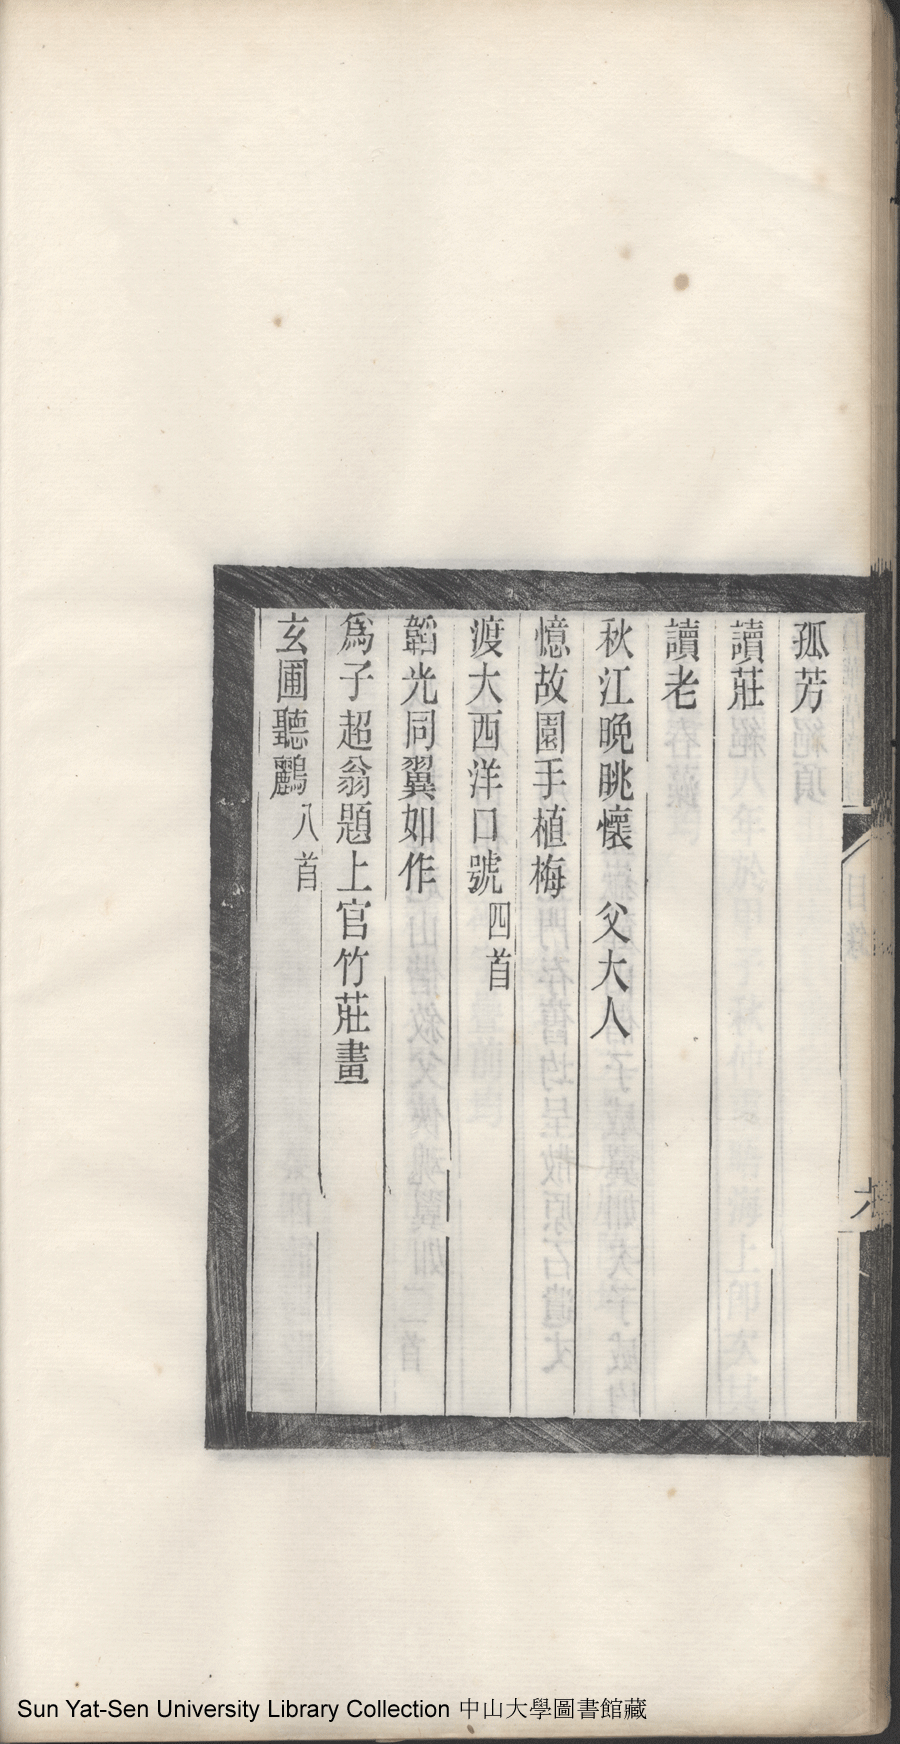 孤芳
讀莊
讀老
秋江晚眺懷　父大人
憶故園手植梅
渡大西洋口號四首
韜光同翼如作
爲子超翁題上官竹莊畫
玄圃聽鸝八首
Sun Yat-Sen University Library Collection 中山大學圖書館藏